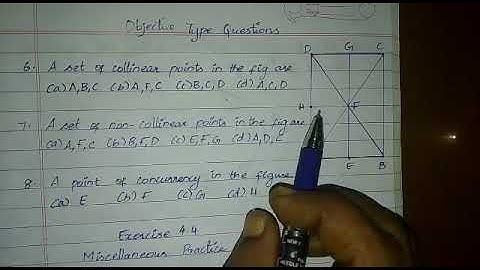 Objective Type Questions
6. A set of collinear points in the fig are
(a) A,B,C (b) A,F,C (c) B,C,D (d) A,C,D
7. A set of non-collinear points in the fig are
(a) A,F,C (b) B,F,D (c) E,F,G (d) A,D,E
8. A point of concurrency in the figure
(a) E (b) F (c) G (d) H
Exercise 4.4
Miscellaneous Practice
D G C
H F
E B
NEW